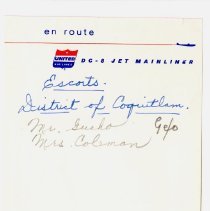 en route
UNITED
AIR LINES
DC-8 JET MAINLINER
Escorts.
District of Coquitlam.
Mr.
Mrs. Coleman